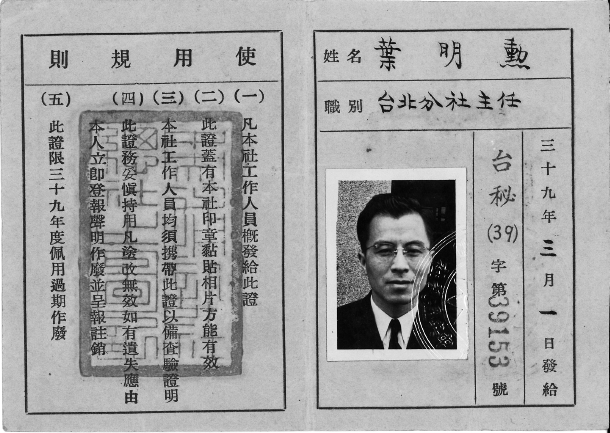 姓名 葉明勲
職別 台北分社主任
三十九年三月一日發給
台秘(39)字第39153號
使用規則
(一) 凡本社工作人員概發給此證
(二) 此證蓋有本社印章黏貼相片方能有效
(三) 本社工作人員均須携帶此證以備查驗證明
(四) 此證務妥慎持用凡塗改無效如有遺失應由
本人立卽登報聲明作廢並呈報註銷
(五) 此證限三十九年度佩用過期作廢